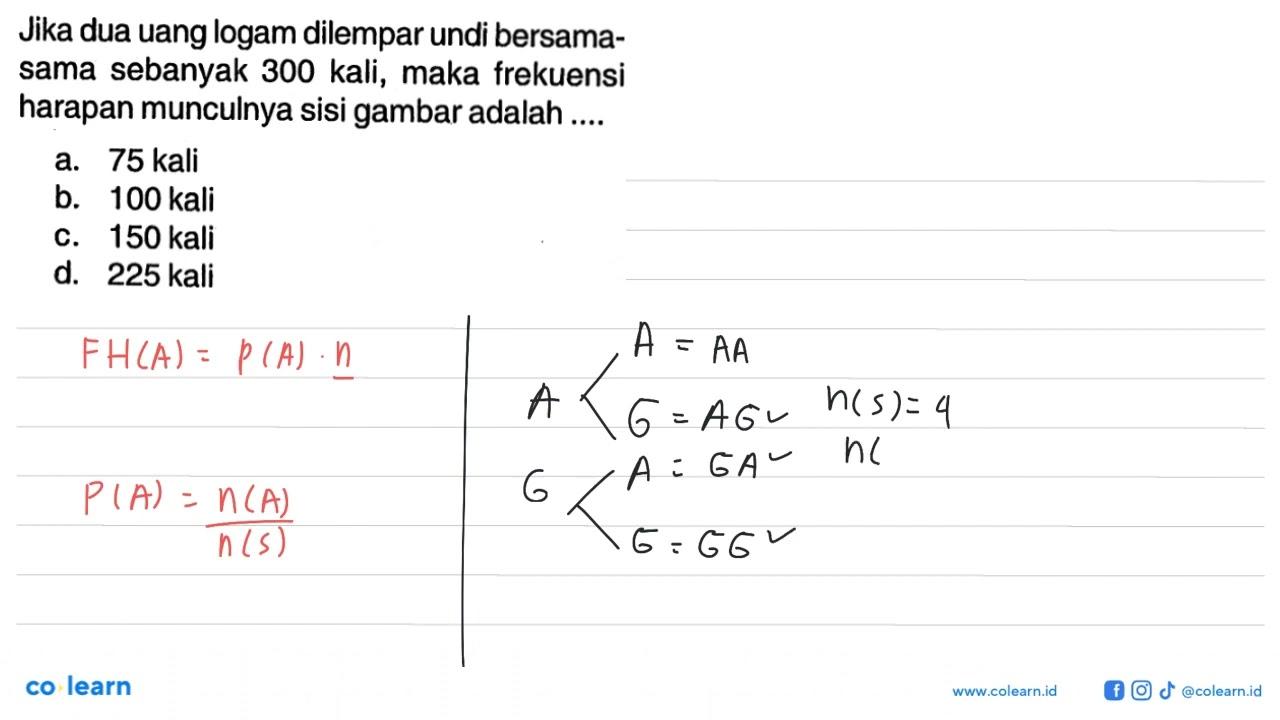 Jika dua uang logam dilempar undi bersama-
sama sebanyak 300 kali, maka frekuensi
harapan munculnya sisi gambar adalah ....
a. 75 kali
b. 100 kali
c. 150 kali
d. 225 kali
FH(A) = P(A) . n
P(A) = n(A)
n(s)
A
A = AA
G = AG ✓
G
A = GA ✓
G = GG ✓
n(s) = 4
n(
co learn
www.colearn.id
@colearn.id